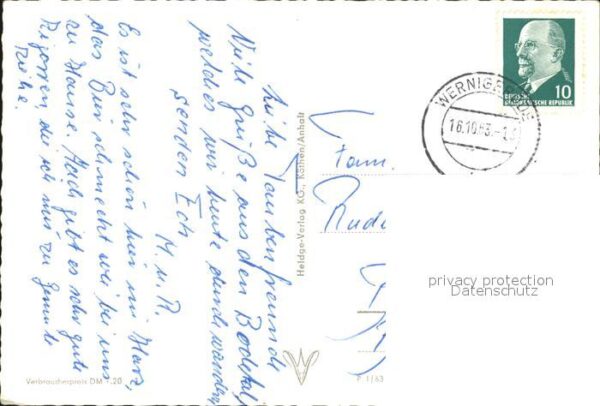 Liebe Taubenfreunde
Viele Grüße aus dem Bodetal,
welches wir heute durchwandern
senden Ech
M. u. R.
Es ist sehr schön hier im Harz,
das Bier schmeckt wie bei uns
zu Hause. Auch gibt es sehr gute
Zigarren, die ich mir zu Gemüte
ziehe.
Verbraucherpreis DM -.20
Heldge-Verlag KG., Köthen/Anhalt
P 1/63
Fam.
Rude
WERNIGERODE
16.10.63.-1
10
DEUTSCHE
DEMOKRATISCHE REPUBLIK
privacy protection
Datenschutz